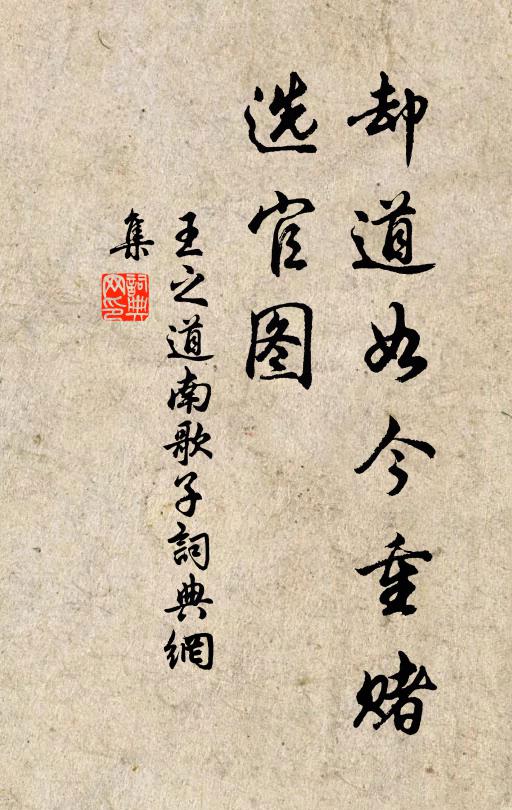 却道如今重赌
选官图
王之道南歌子詞典網
集
詞典
网印